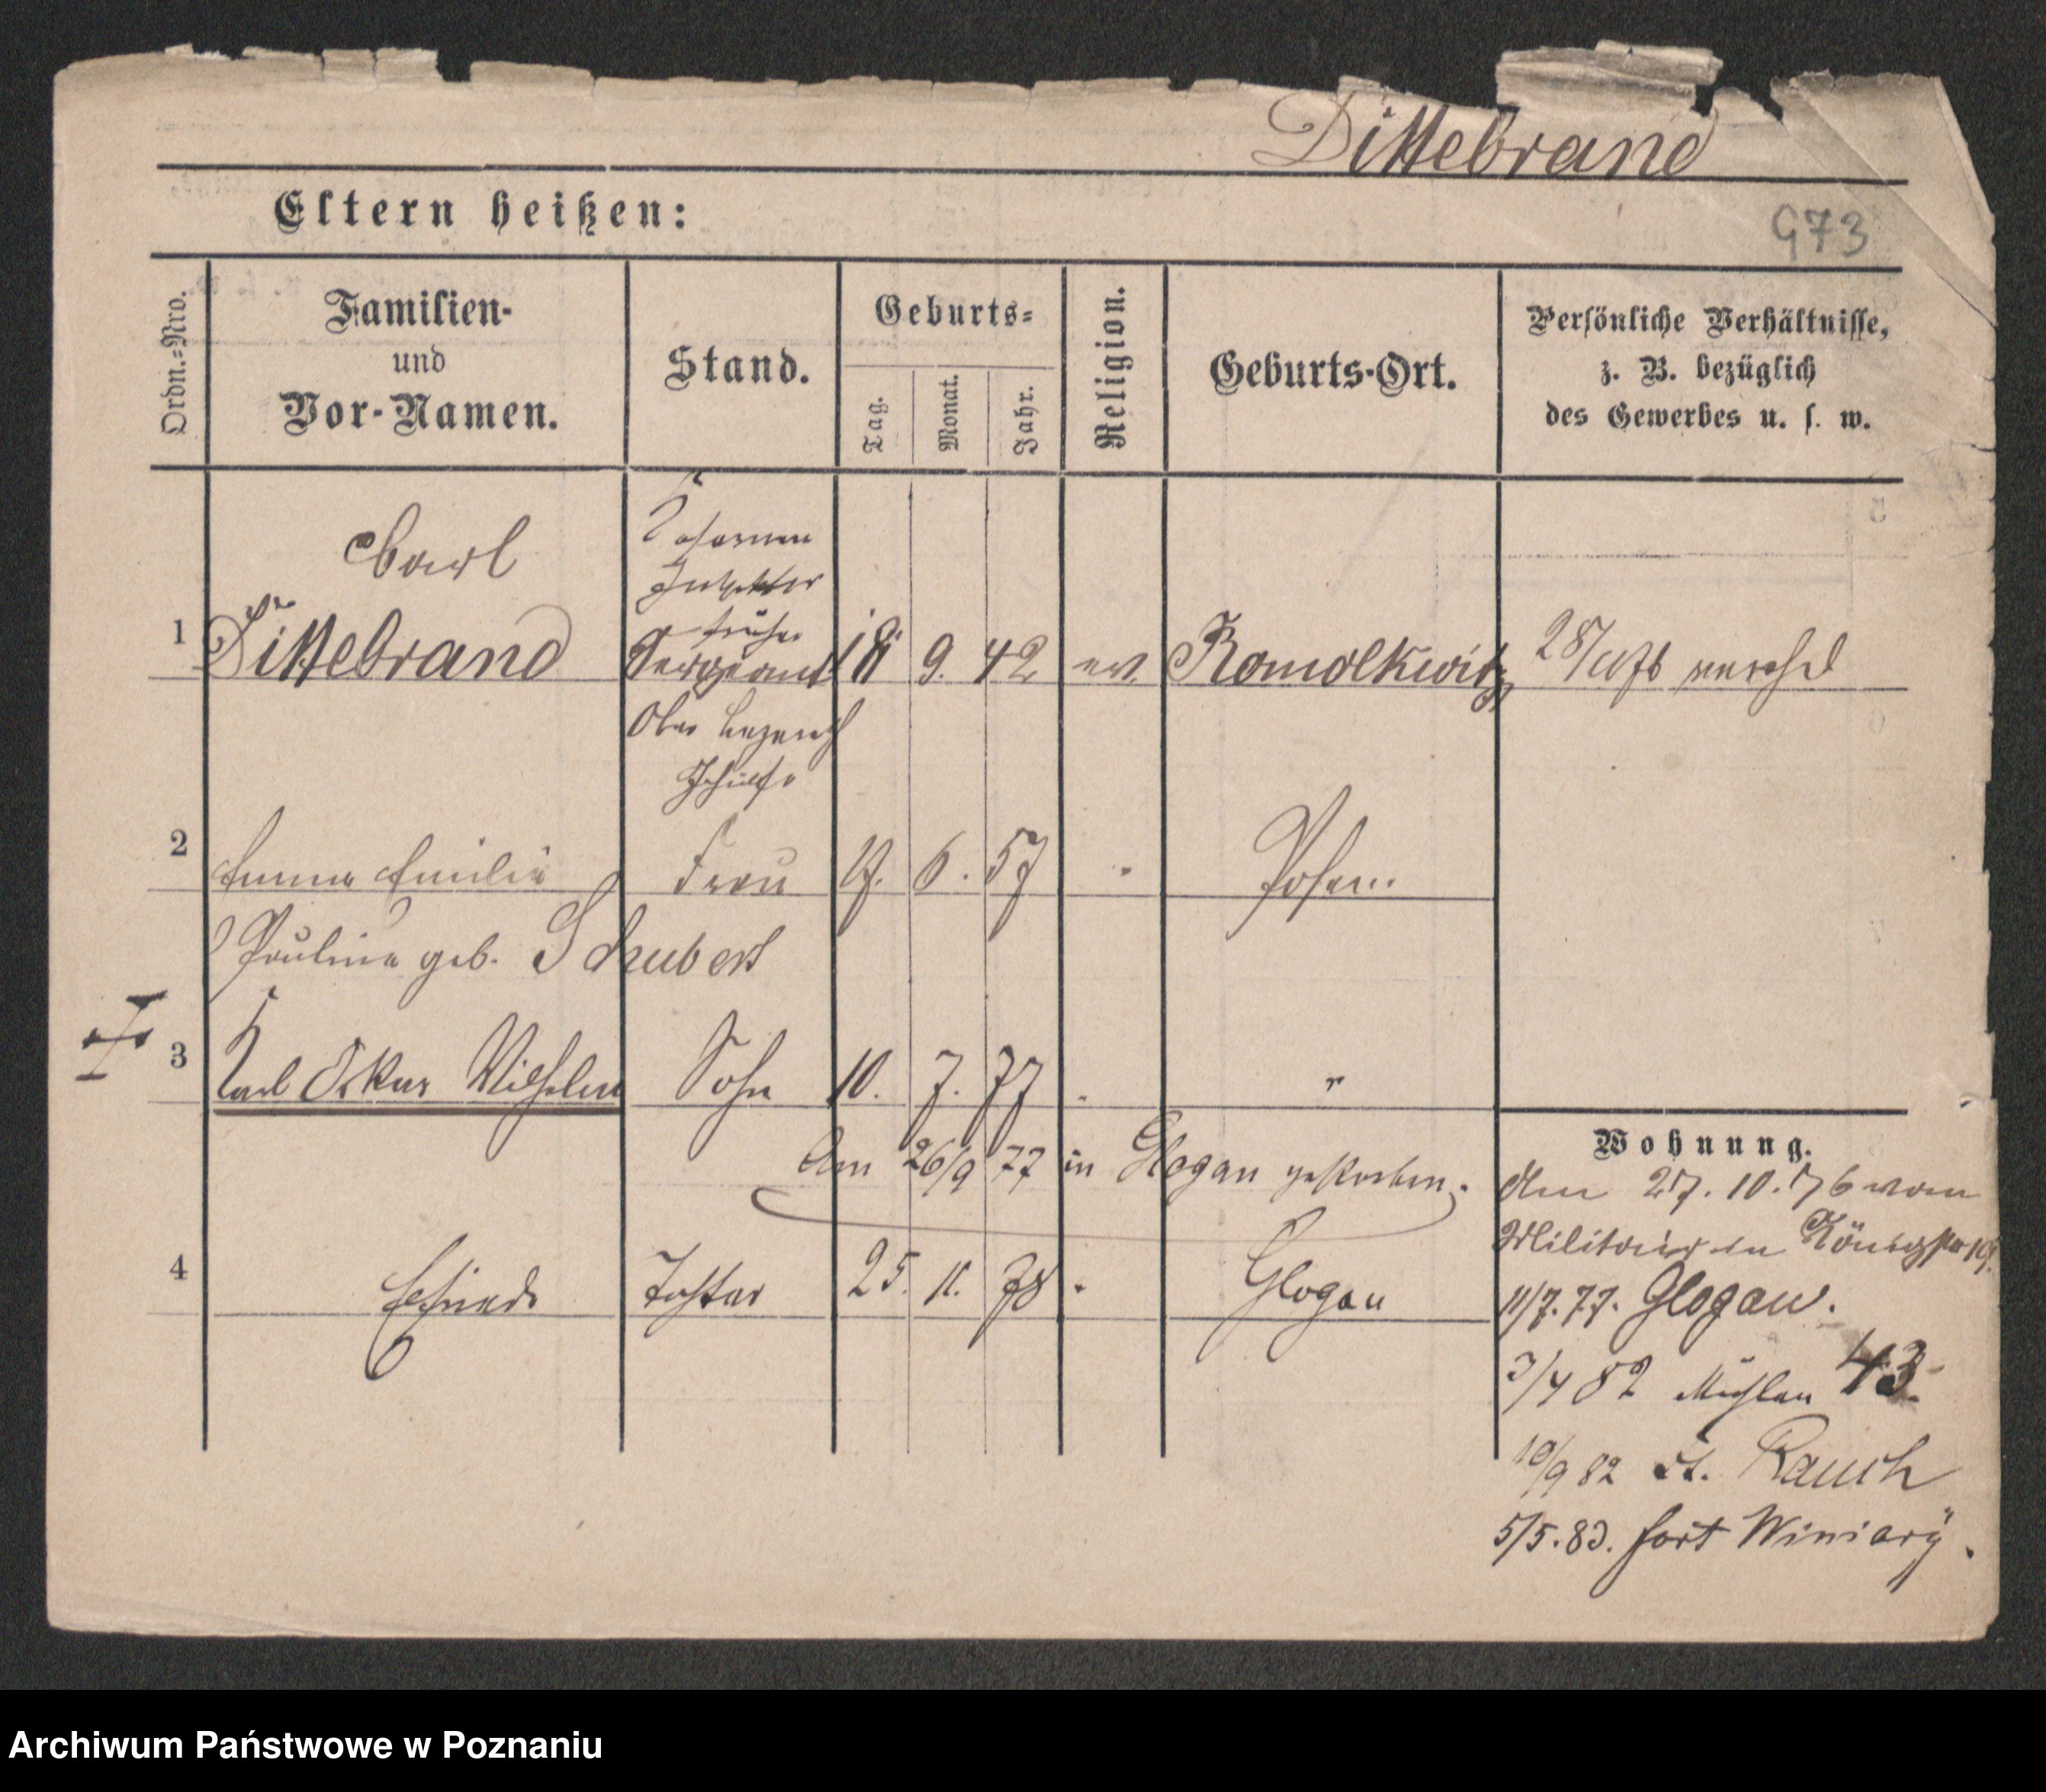 Dittebrand
Eltern heißen:
973
Ordn.=Nro.
Familien-
und
Vor-Namen.
Stand.
Geburts=
Tag.
Monat.
Jahr.
Religion.
Geburts-Ort.
Persönliche Verhältnisse,
z. B. bezüglich
des Gewerbes u. s. w.
Carl
Kasernen
Inspektor
früher
1 Dittebrand Sergeant 18 9. 42 ev. Romolkwitz 28/10 76 verehel
Ober Lazareth
Gehülfe
2 Emma Emilie Frau 17. 6. 57 Posen
Pauline geb. Schubert
3 Karl Oskar Wilhelm Sohn 10. 7. 77 "
Am 26/9 77 in Glogau gestorben.
4 Tochter 25. 11. 78 Glogau
Wohnung.
den 27. 10. 76 vom
Militair in Königstr 19.
11/7. 77. Glogau.
3/4 82 Mühlen 43.
10/9 82 Ft. Rauch
5/5. 83. Fort Winiary.
Archiwum Państwowe w Poznaniu